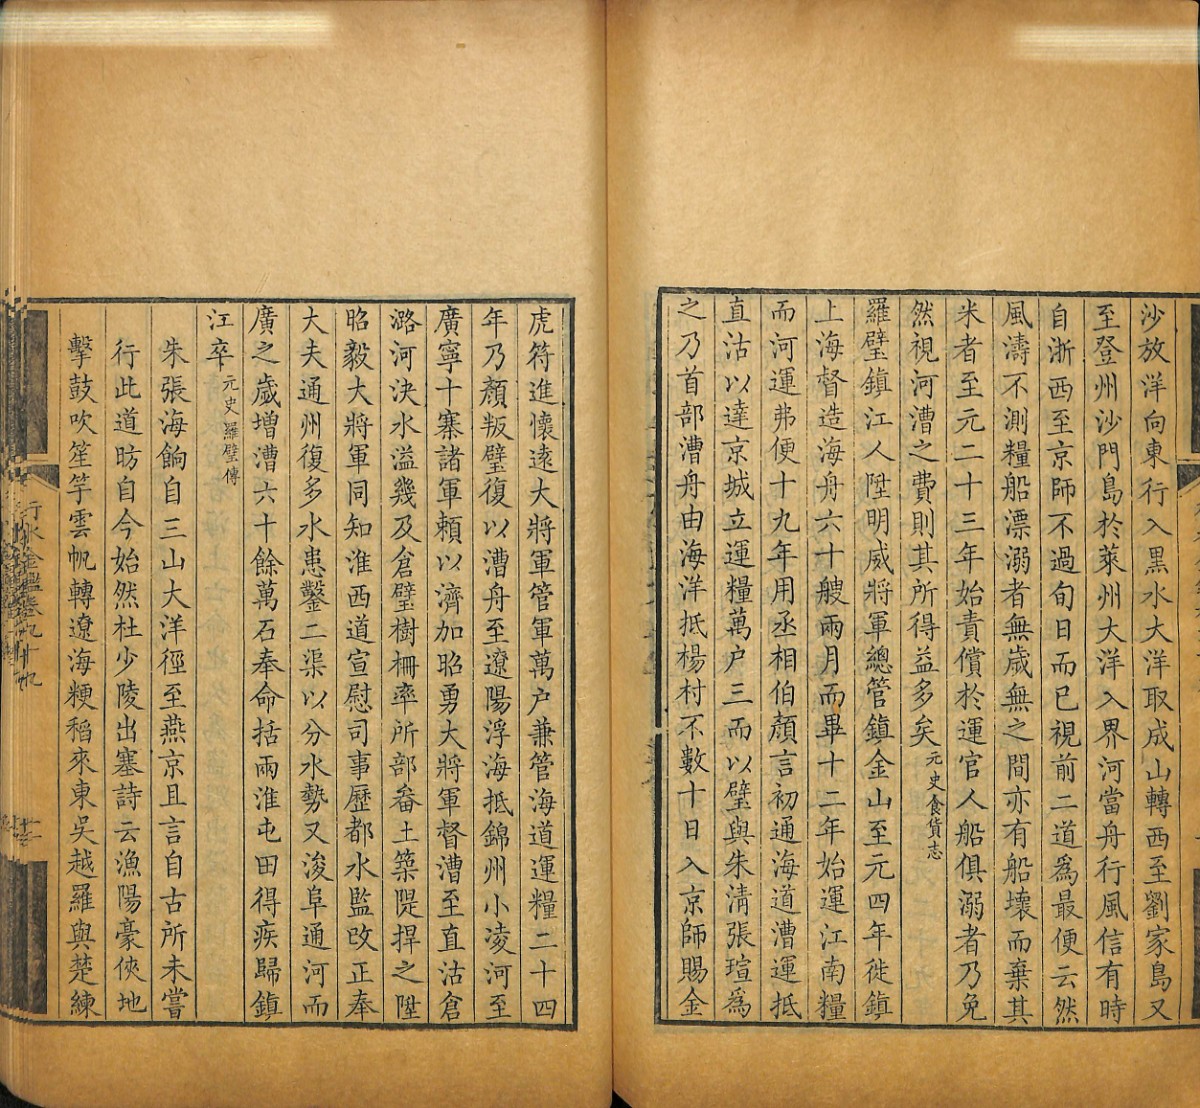 沙放洋向東行入黑水大洋取成山轉西至劉家島又
至登州沙門島於萊州大洋入界河當舟行風信有時
自浙西至京師不過旬日而已視前二道爲最便云然
風濤不測糧船漂溺者無歲無之間亦有船壞而棄其
米者至元二十三年始責償於運官人船俱溺者乃免
然視河漕之費則其所得益多矣元史食貨志
羅璧鎮江人陞明威將軍總管鎮金山至元四年徙鎮
上海督造海舟六十艘兩月而畢十二年始運江南糧
而河運弗便十九年用丞相伯顏言初通海道漕運抵
直沽以達京城立運糧萬户三而以璧與朱淸張瑄爲
之乃首部漕舟由海洋抵楊村不數十日入京師賜金
虎符進懷遠大將軍管軍萬户兼管海道運糧二十四
年乃顏叛璧復以漕舟至遼陽浮海抵錦州小凌河至
廣寧十寨諸軍賴以濟加昭勇大將軍督漕至直沽倉
潞河決水溢幾及倉璧樹柵率所部畚土築隄捍之陞
昭毅大將軍同知淮西道宣慰司事歷都水監改正奉
大夫通州復多水患鑿二渠以分水勢又浚阜通河而
廣之歲增漕六十餘萬石奉命括兩淮屯田得疾歸鎮
江卒元史羅璧傳
朱張海餉自三山大洋徑至燕京且言自古所未嘗
行此道昉自今始然杜少陵出塞詩云漁陽豪俠地
擊鼓吹笙竽雲帆轉遼海粳稻來東吳越羅與楚練
行水金鑑卷九十九